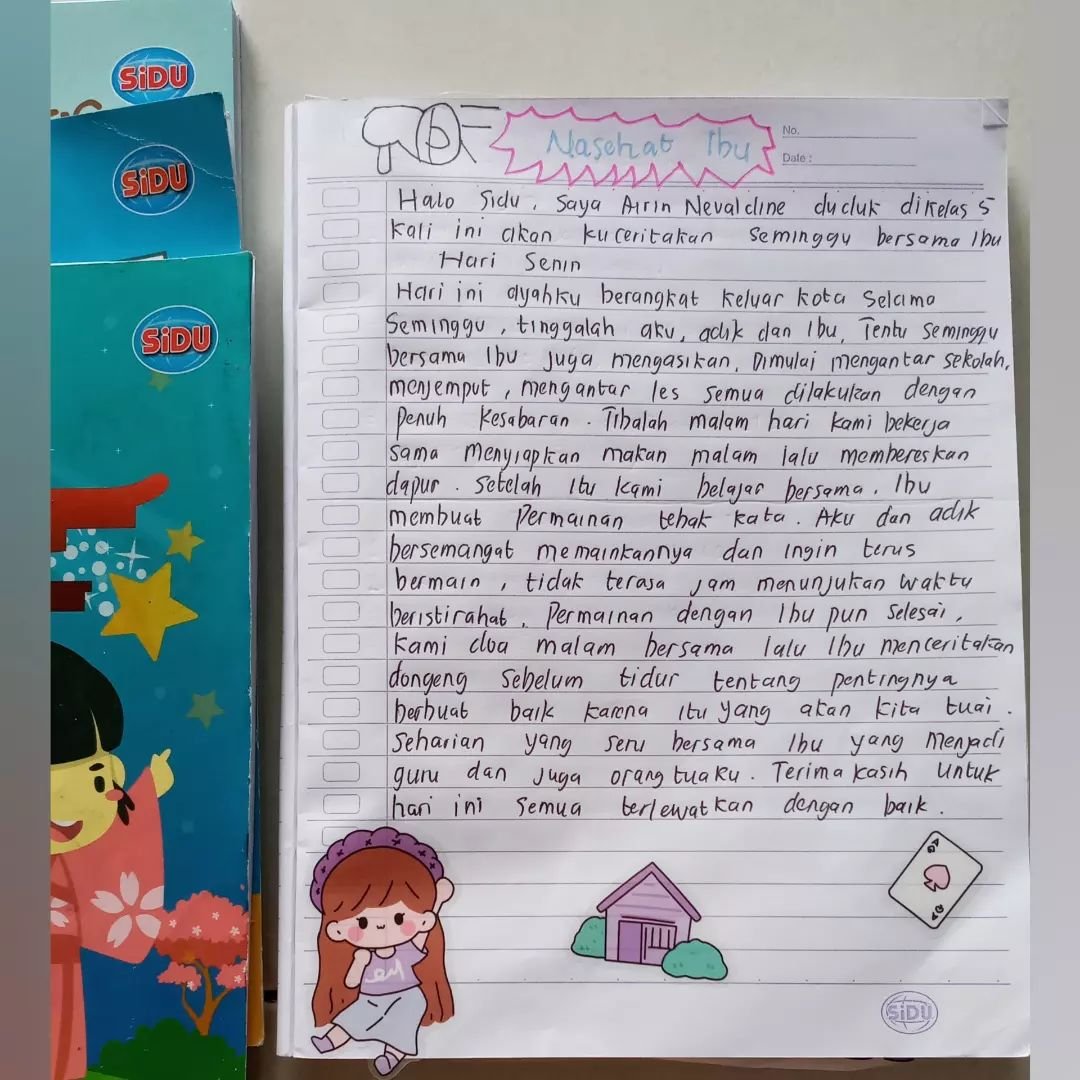 SiDU
SiDU
SiDU
Nasehat Ibu
No.
Date :
Halo Sidu, Saya Airin Nevalcline duduk dikelas 5
kali ini akan kuceritakan seminggu bersama Ibu
Hari Senin
Hari ini ayahku berangkat keluar kota selama
Seminggu, tinggalah aku, adik dan Ibu, Tentu seminggu
bersama Ibu juga mengasikan, Dimulai mengantar sekolah,
menjemput, mengantar les semua dilakukan dengan
penuh kesabaran. Tibalah malam hari kami bekerja
sama menyiapkan makan malam lalu membereskan
dapur. Setelah itu kami belajar bersama. Ibu
membuat permainan tebak kata. Aku dan adik
bersemangat memainkannya dan ingin terus
bermain, tidak terasa jam menunjukan waktu
beristirahat. Permainan dengan Ibu pun selesai,
kami doa malam bersama lalu Ibu menceritakan
dongeng sebelum tidur tentang pentingnya
berbuat baik karena itu yang akan kita tuai.
Seharian yang seru bersama Ibu yang menjadi
guru dan juga orang tuaku. Terima kasih untuk
hari ini semua terlewatkan dengan baik.
SiDU